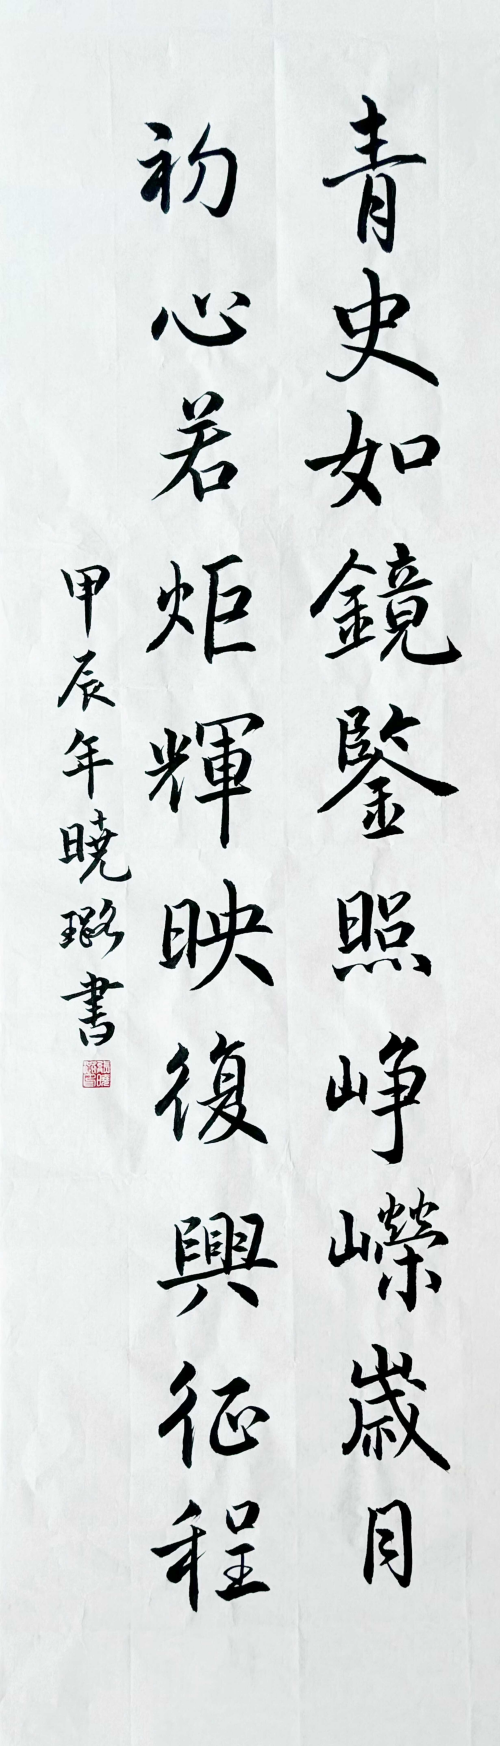 青史如鏡鑒照峥嶸歲月
初心若炬輝映復興征程
甲辰年曉璐書